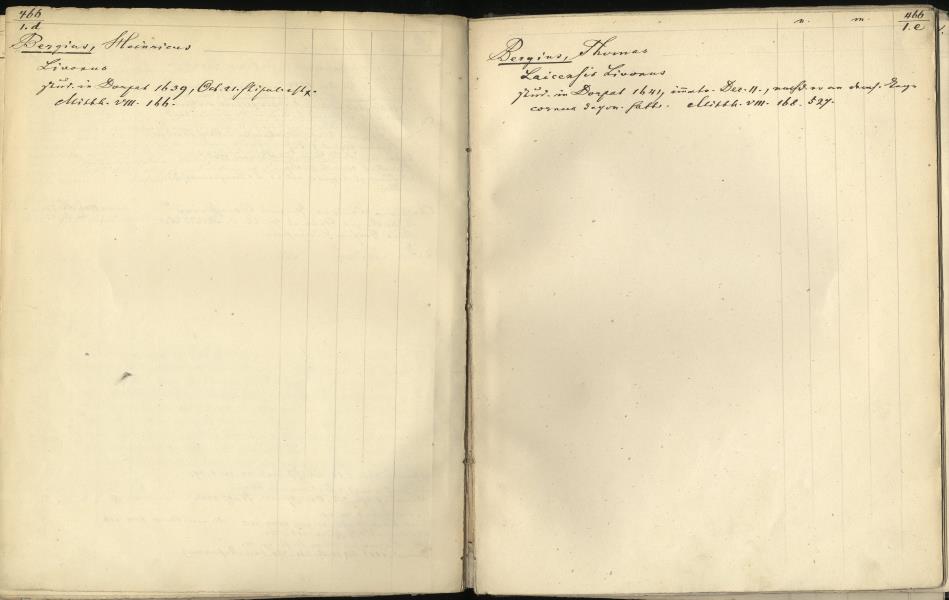 466
1.d
Bergius, Heinricus
Livonus
stud. in Dorpat 1639, Oct. 21.
Mitth. VIII. 166.
n. m.
466
1.e
Bergius, Thomas
Laicensis Livonus
stud. in Dorpat 1641, Dec. 11., nachd. er an dems. Tage
depon. hatte. Mitth. VIII. 168. 527.